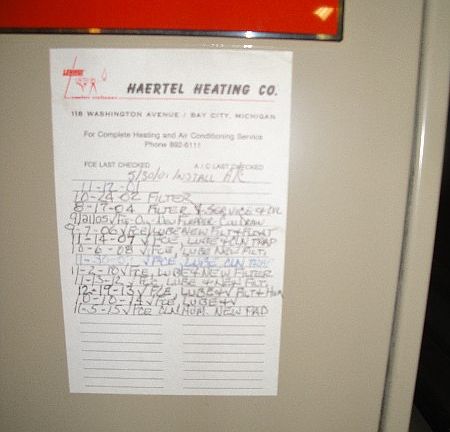 LENNOX
HAERTEL HEATING CO.
118 WASHINGTON AVENUE / BAY CITY, MICHIGAN
For Complete Heating and Air Conditioning Service
Phone 892-6111
FCE LAST CHECKED A/C LAST CHECKED
5/30/01 INSTALL A/C
11-12-01
10-24-02 FILTER
8-17-04 FILTER & SERVICE
9/21/05 √ FCE
7-06 √ FCE LUBE NEW FILT & FLOAT
11-14-07 √ FCE, LUBE & CLN TRAP
10-6-08 √ FCE LUBE NEW FILT
√ FCE, LUBE CLN
11-2-10 √ FCE LUBE & NEW FILTER
11-15-12 √ FCE LUBE & NEW FILT
12-19-13 √ FCE LUBE & √ FILT & HUM
10-10-14 √ FCE LUBE & √
11-5-15 √ FCE CLN HUM. NEW PAD